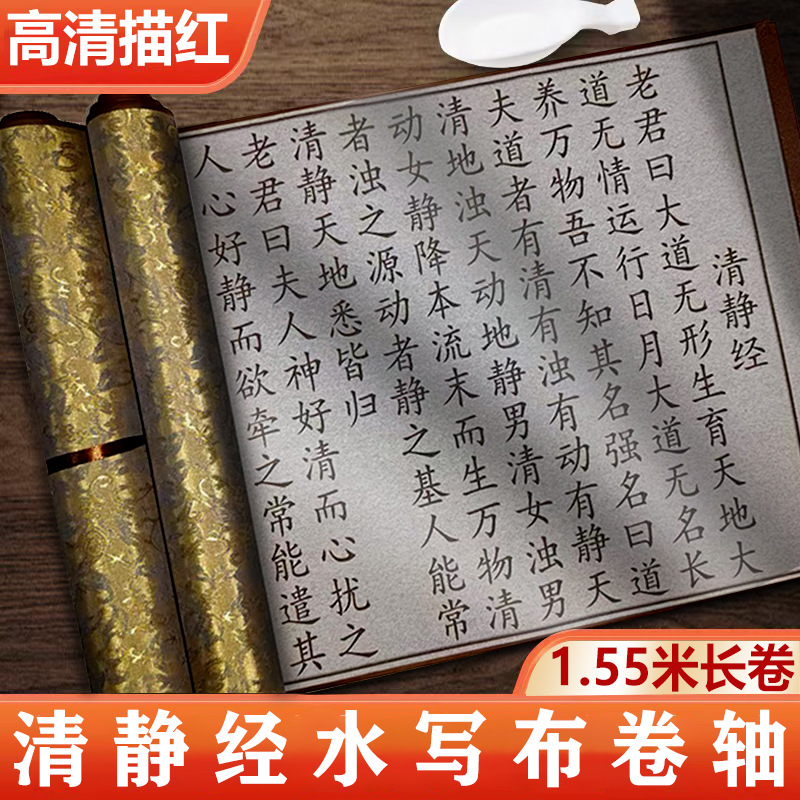 高清描红
清静经
老君曰大道无形生育天地大
道无情运行日月大道无名长
养万物吾不知其名强名曰道
夫道者有清有浊有动有静天
清地浊天动地静男清女浊男
动女静降本流末而生万物清
者浊之源动者静之基人能常
清静天地悉皆归
老君曰夫人神好清而心扰之
人心好静而欲牵之常能遣其
1.55米长卷
清静经水写布卷轴